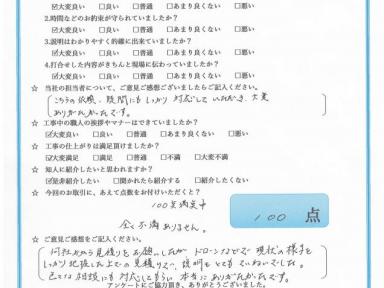 ☑大変良い □良い □普通 □あまり良くない □悪い
2.時間などのお約束が守られていましたか?
☑大変良い □良い □普通 □あまり良くない □悪い
3.説明はわかりやすく的確に出来ていましたか?
☑大変良い □良い □普通 □あまり良くない □悪い
4.打合せした内容がきちんと現場に伝わっていましたか?
☑大変良い □良い □普通 □あまり良くない □悪い
☆ 当社の担当者について、ご意見ご感想ございましたらご記入ください。
こちらの依頼、質問にもしっかり対応していただき、大変
ありがたかったです。
☆ 工事中の職人の挨拶やマナーはできていましたか?
☑大変良い □良い □普通 □あまり良くない □悪い
☆ 工事の仕上がりは満足頂けましたか?
☑大変満足 □満足 □普通 □不満 □大変不満
☆ 知人に紹介したいと思われますか?
☑是非紹介したい □聞かれたら紹介する □紹介したくない
☆ 今回のお取引に、あえて点数をお付けいただくと?
100点満点中
100 点
全く不満ありません。
☆ ご意見ご感想をご記入ください。
何社かから見積りをお願いしたが ドローンなどで 現状の様子を
しっかり把握した上での見積りで、説明もとてもていねいでした。
色々な相談にも対応してもらい 本当にありがたかったです。
アンケートにご協力頂き、ありがとうございました。